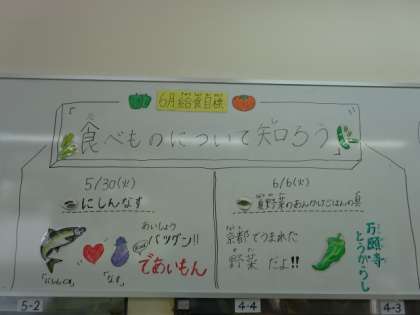 6月給食目標
「食べものについて知ろう」
5/30(火)
にしんなす
あいしょう
バツグン!!
であいもん
「にしんくん」
「なす」
6/6(火)
夏野菜のあんかけごはんの具
京都でうまれた
野菜だよ!!
万願寺
とうがらし
5-2
4-4
4-3